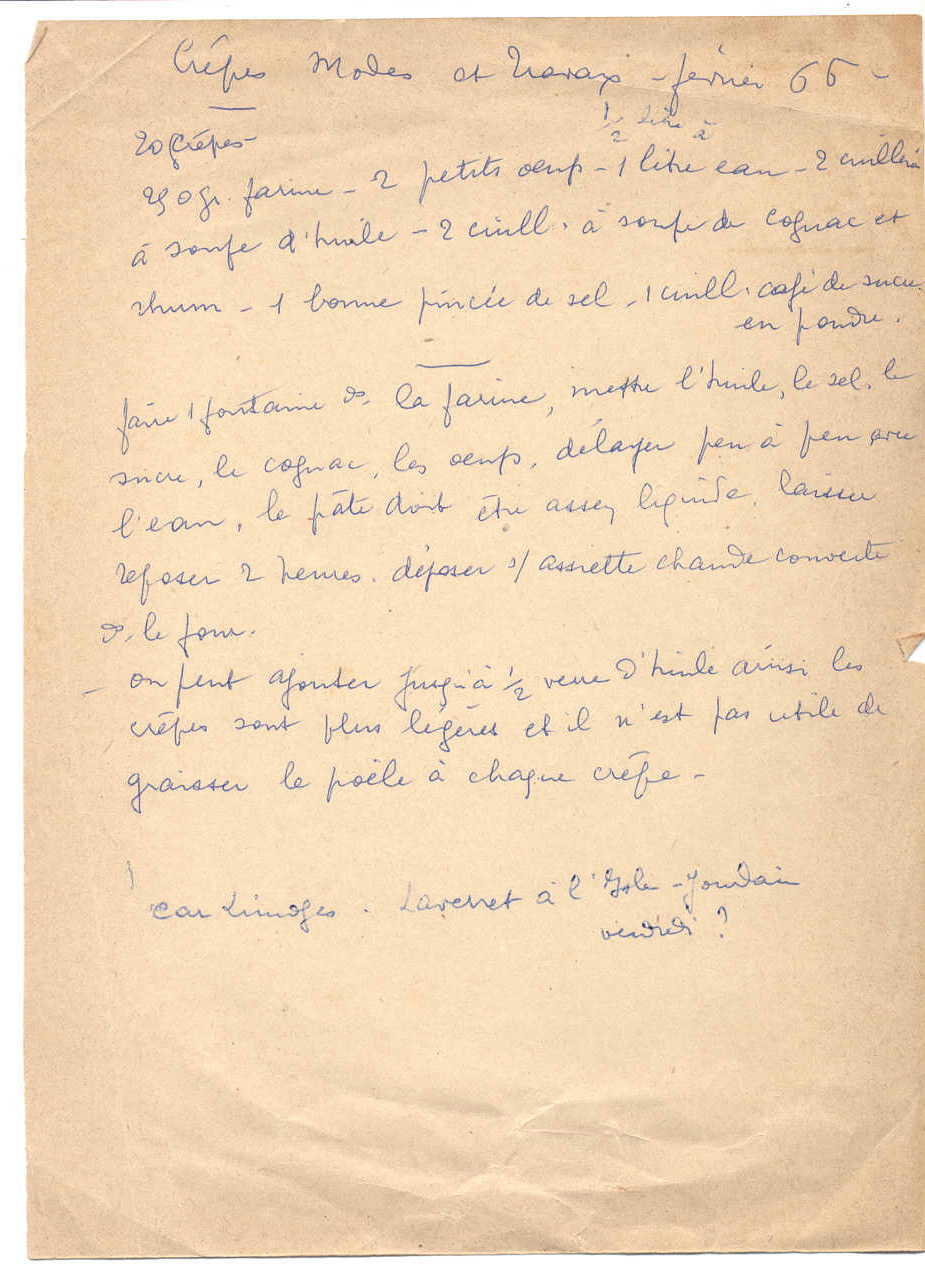 Crêpes Modes et Travaux - février 66 -
20 Crêpes -
1/2 litre à
250 gr. farine - 2 petits oeufs - 1 litre eau - 2 cuillères
à soupe d'huile - 2 cuill. à soupe de cognac et
rhum - 1 bonne pincée de sel - 1 cuill. café de sucre
en poudre.
faire 1 fontaine ds. la farine, mettre l'huile, le sel, le
sucre, le cognac, les oeufs, délayer peu à peu avec
l'eau, la pâte doit être assez liquide. laisser
reposer 2 heures. déposer s/ assiette chaude couverte
ds. le four.
- on peut ajouter jusqu'à 1/2 verre d'huile ainsi les
crêpes sont plus légères et il n'est pas utile de
graisser la poêle à chaque crêpe -
car Limoges. à l'Isle-Jourdain
vendredi ?